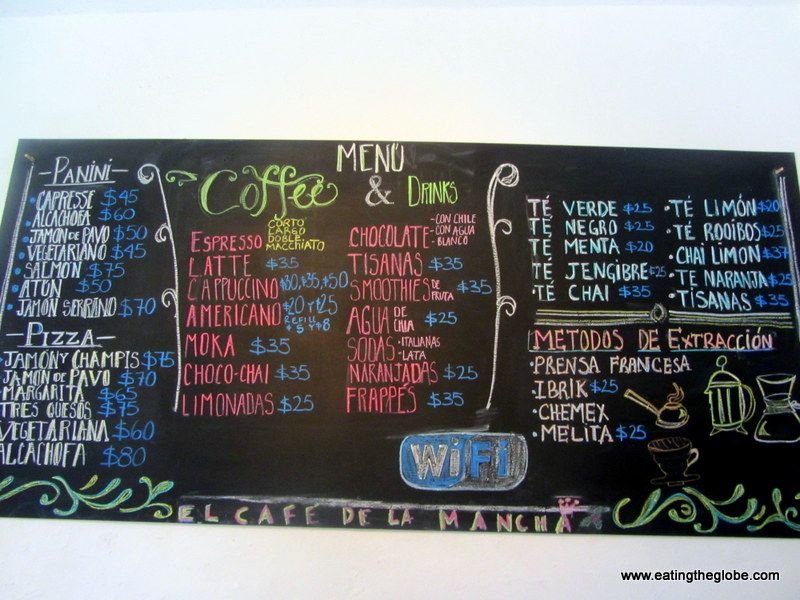 MENÚ
-PANINI-
• CAPRESSE $45
ALCACHOFA $60
• JAMON DE PAVO $50
• VEGETARIANO $45
• SALMON $75
• ATÚN $50
• JAMON SERRANO $70
-PIZZA-
• JAMON Y CHAMPIS $75
JAMON DE PAVO $70
• MARGARITA $65
TRES QUESOS $75
VEGETARIANA $60
ALCACHOFA $80
Coffee & DRINKS
ESPRESSO CORTO
LARGO
DOBLE
MACCHIATO
LATTE $35
CAPPUCCINO $30, $35, $50
AMERICANO $20 Y $25
REFILL
$5 Y $8
MOKA $35
CHOCO-CHAI $35
LIMONADAS $25
CHOCOLATE - CON CHILE
- CON AGUA
- BLANCO
TISANAS $35
SMOOTHIES DE FRUTA $35
AGUA DE CHIA $25
SODAS • ITALIANAS
• LATA
NARANJADAS $25
FRAPPÉS $35
TÉ VERDE $25
TÉ NEGRO $25
TÉ MENTA $20
TÉ JENGIBRE $25
TÉ CHAI $35
• TÉ LIMÓN $20
• TÉ ROOIBOS $25
• CHAI LIMON $37
• TE NARANJA $25
• TISANAS $35
METODOS DE EXTRACCIÓN
• PRENSA FRANCESA
IBRIK $25
• CHEMEX
• MELITA $25
WiFi
EL CAFE DE LA MANCHA
www.eatingtheglobe.com